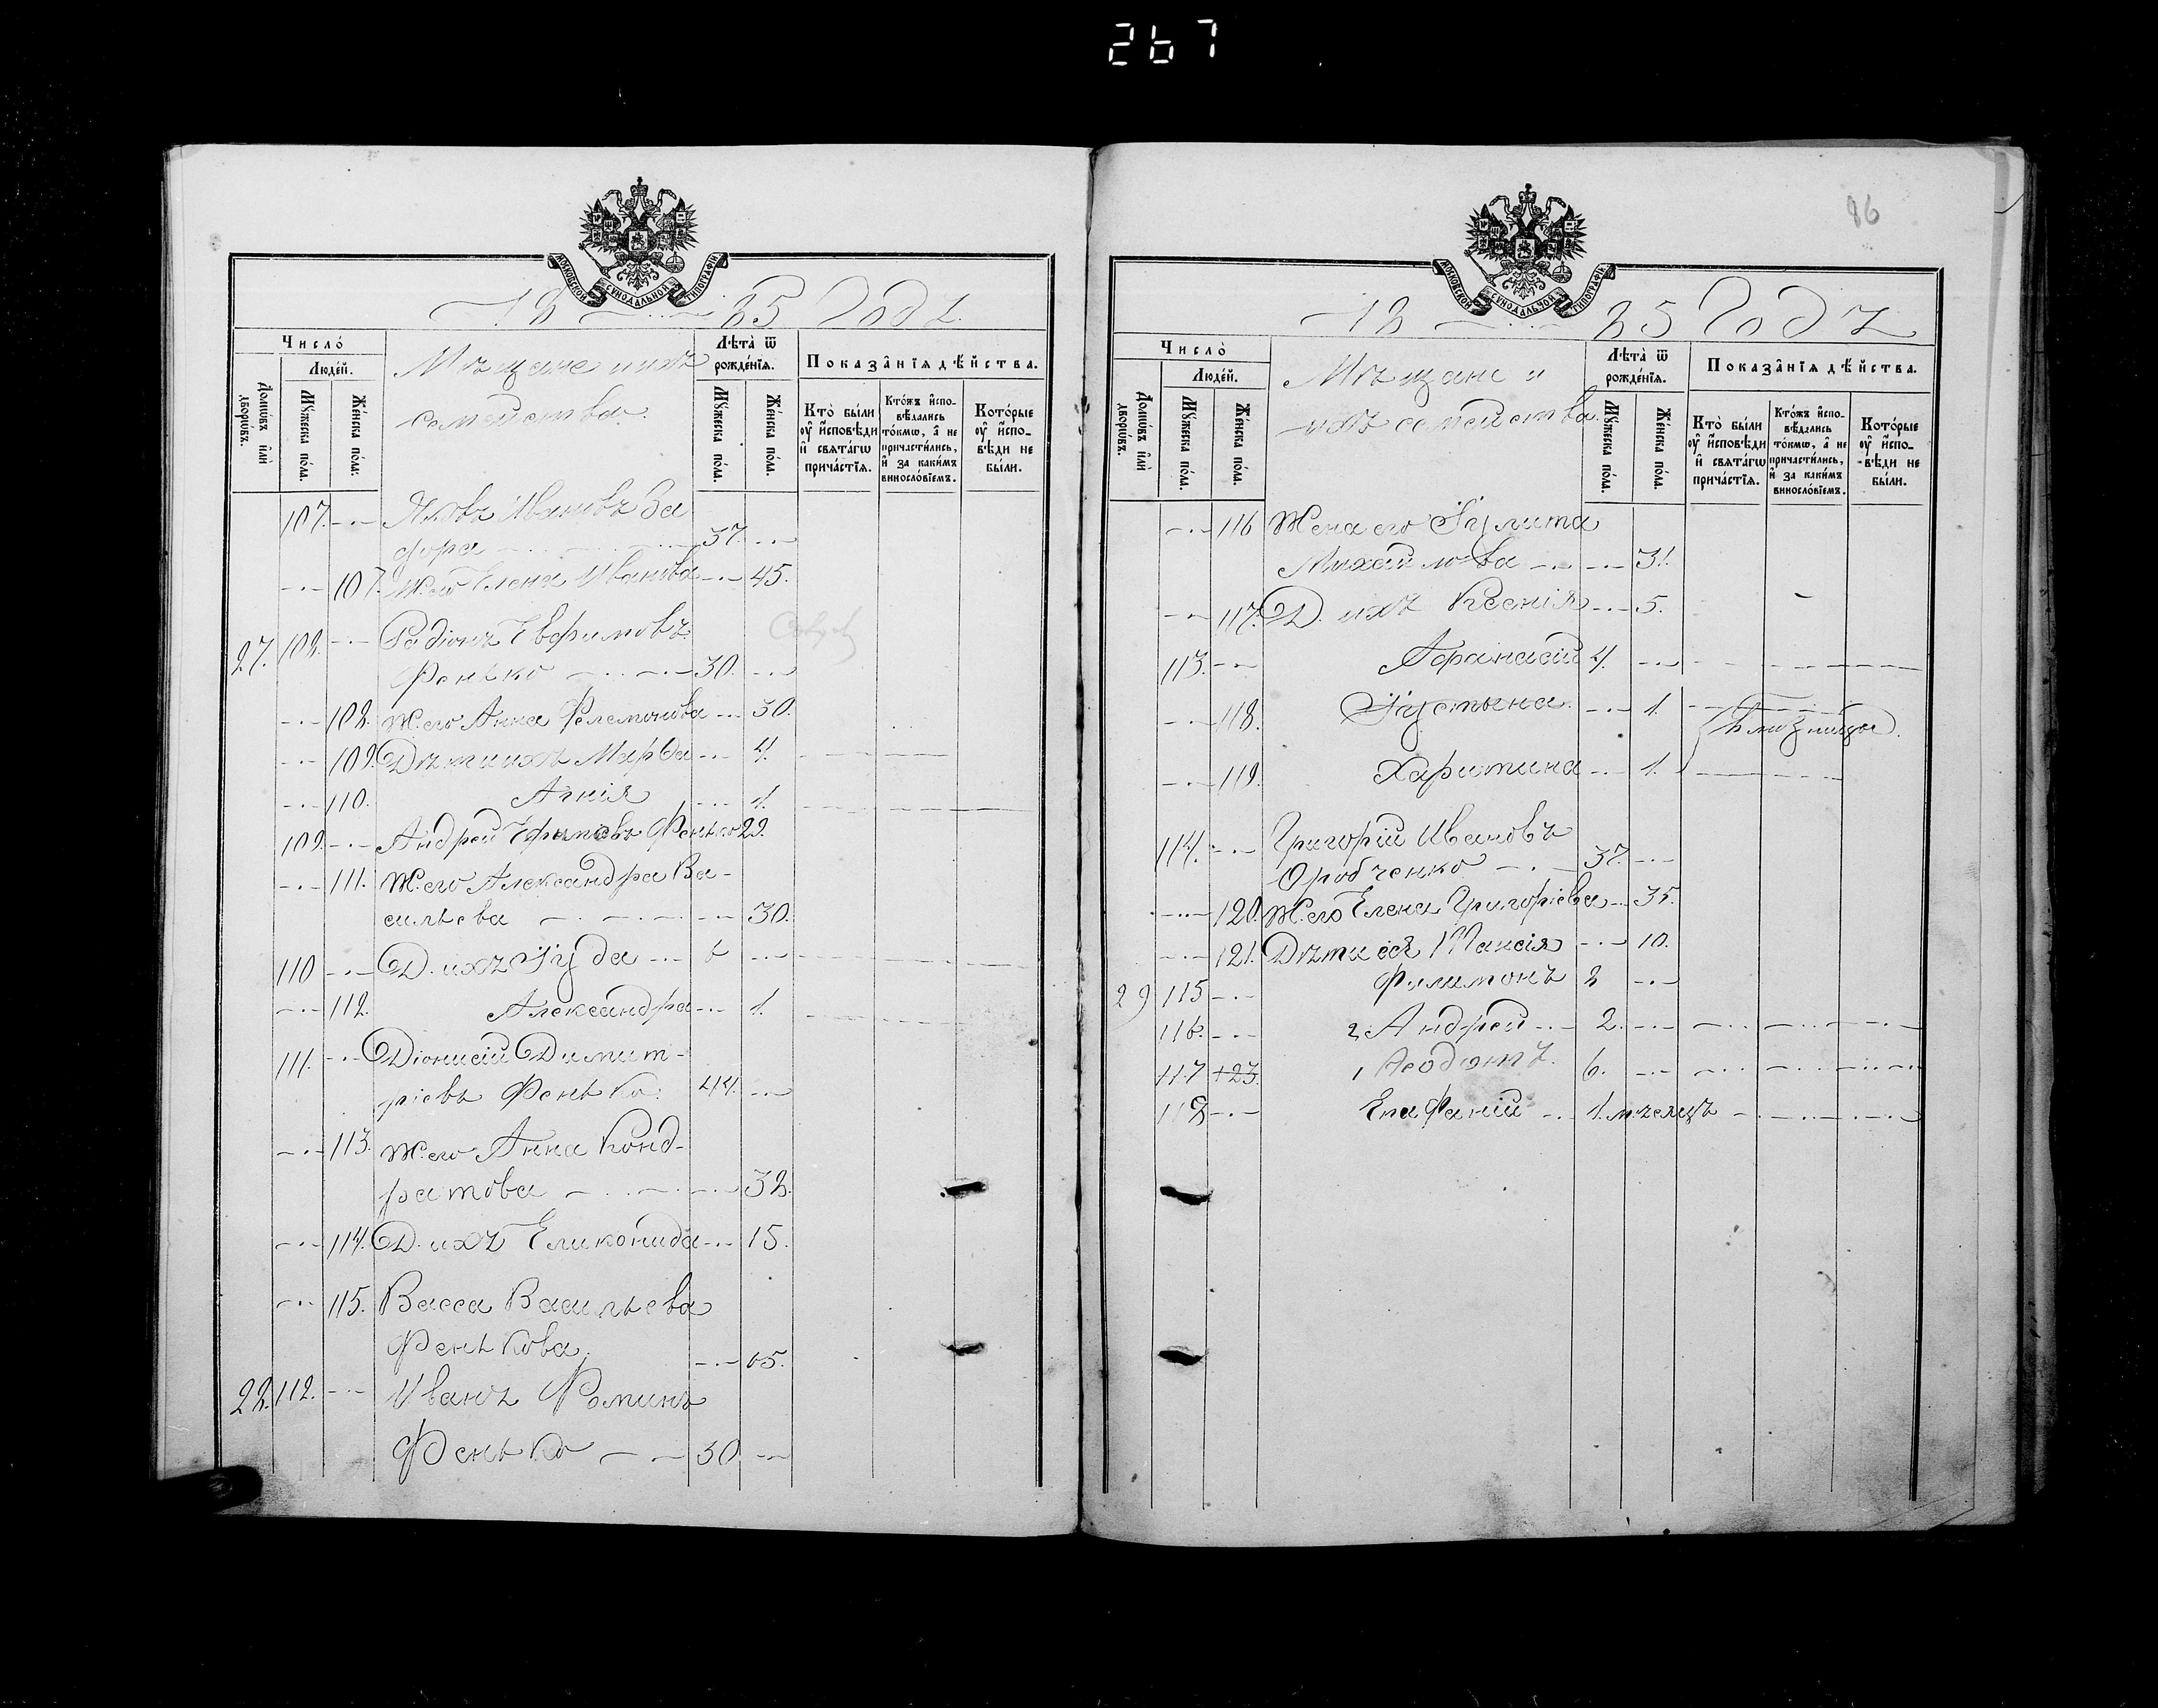 267
МОСКОВСКОЙ СѴНОДАЛЬНОЙ ТИПОГРАФІИ
18 85 Годъ.
Число̀
Людей.
Домѡвъ и҆лѝ дворѡвъ.
Мꙋжеска пола.
Женска пола.
Мѣщане и ихъ
семейства.
Лѣта̀ ѿ рожденїѧ.
Мꙋжеска пола.
Женска пола.
Показанїѧ дѣйства.
Кто̀ были оу҆ и҆сповѣди и҆ свѧтагѡ причастїѧ.
Ктожъ и҆сповѣдались токмѡ, а҆ не причастились, и҆ за какимъ винословїемъ.
Которые оу҆ и҆сповѣди не были.
107. Яковъ Ивановъ За
дора 37.
107. Ж. его Елена Иванова 45.
27. 108. Радіонъ Евфимовъ
Фенько 30.
108. Ж. его Анна Филемонова 30.
109. Дѣти ихъ Марѳа 4.
110. Агнія 1.
109. Андрей Ефимовъ Фенько 29.
111. Ж. его Александра Ва-
сильева 30.
110 Д. ихъ Іуда 6
112. Александра 1.
111. Діонисій Димит-
ріевъ Фенько. 44.
113. Ж. его Анна Конд-
ратова 38.
114. Д. ихъ Еликонида 15.
115. Васса Васильева
Фенькова. 65.
28. 112. Иванъ Фоминъ
Фенько 30
86
МОСКОВСКОЙ СѴНОДАЛЬНОЙ ТИПОГРАФІИ
18 85 Годъ
Число̀
Людей.
Домѡвъ и҆лѝ дворѡвъ.
Мꙋжеска пола.
Женска пола.
Мѣщане и
ихъ семейства.
Лѣта̀ ѿ рожденїѧ.
Мꙋжеска пола.
Женска пола.
Показанїѧ дѣйства.
Кто̀ были оу҆ и҆сповѣди и҆ свѧтагѡ причастїѧ.
Ктожъ и҆сповѣдались токмѡ, а҆ не причастились, и҆ за какимъ винословїемъ.
Которые оу҆ и҆сповѣди не были.
116 Жена его Іулита
Михайлова 31.
117. Д. ихъ Ксенія 5.
113. Афанасій 4.
118. Іустина 1.
близницы.
119. Харитина 1.
114. Григорій Ивановъ
Оробченко 37.
120. Ж. его Елена Григоріева 35.
121. Дѣти ея Таисія 10.
29 115 Филимонъ 8
116. 2 Андрей 2.
117 123. 1 Ѳеодотъ. 6.
118 Епифаній 1. мѣсяцъ